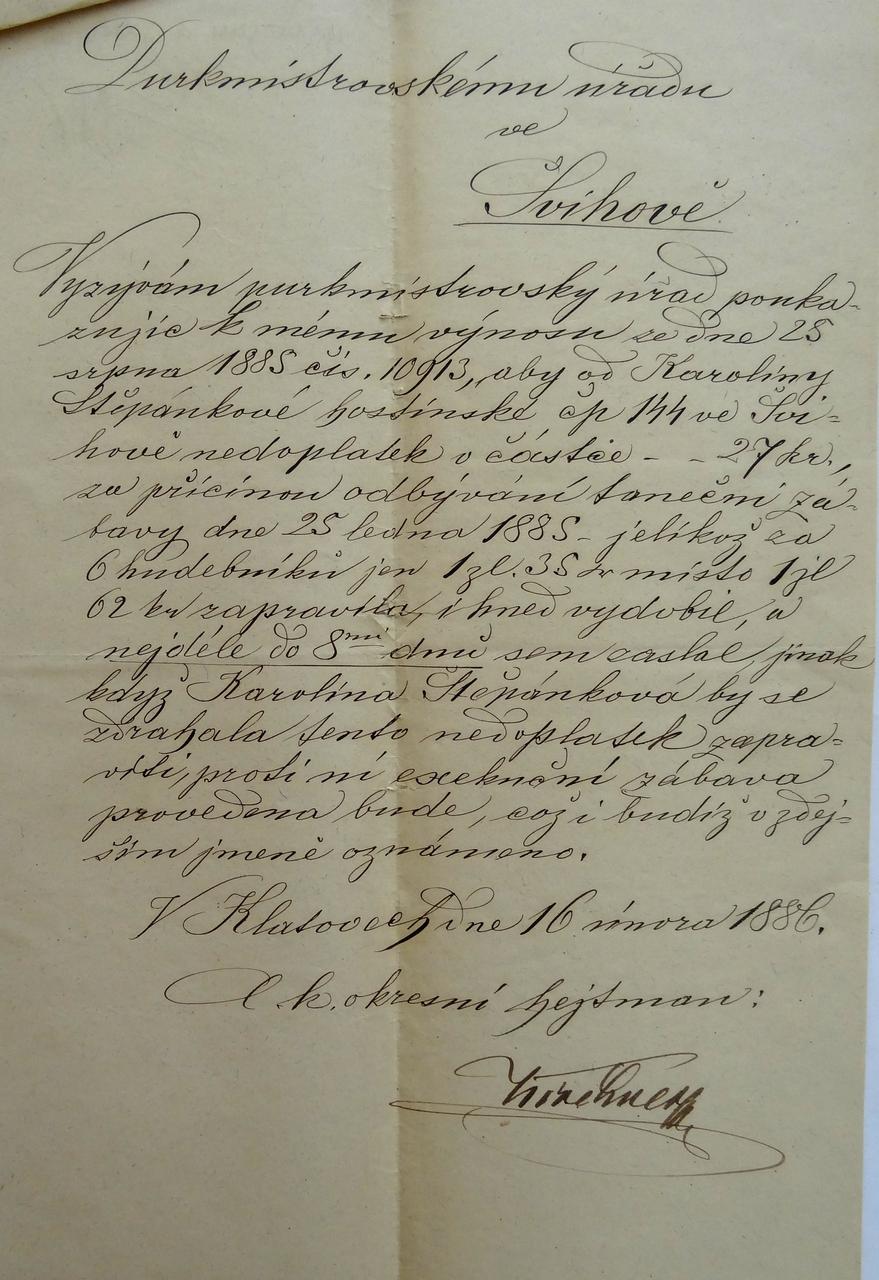 Purkmistrovskému úřadu
ve
Švihově
Vyzývám purkmistrovský úřad pouka-
zujíc k mému výnosu ze dne 25
srpna 1885 čís. 10913, aby od Karolíny
Štěpánkové hostinské čp 144 ve Švi-
hově nedoplatek v částce - - 27 kr.,
za příčinou odbývání taneční zá-
bavy dne 25 ledna 1885 - jelikož za
6 hudebníků jen 1 zl. 35 kr místo 1 zl
62 kr zapravila, i hned vydobil, a
nejdéle do 8mi dnů sem zaslal, jinak
když Karolína Štěpánková by se
zdráhala tento nedoplatek zapra-
viti, proti ní exekuční zábava
provedena bude, což i budiž v zdej-
ším jmeně oznámeno.
V Klatovech dne 16 února 1886.
C. k. okresní hejtman: